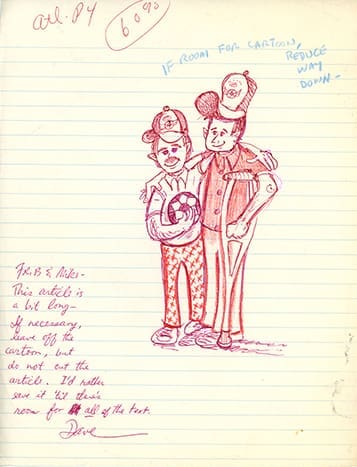 Atl. P4
60%
IF ROOM FOR CARTOON,
REDUCE
WAY
DOWN-
Fr. B & Mike-
This article is
a bit long-
If necessary,
leave off the
cartoon, but
do not cut the
article. I'd rather
save it 'til there's
room for all of the text.
Dave